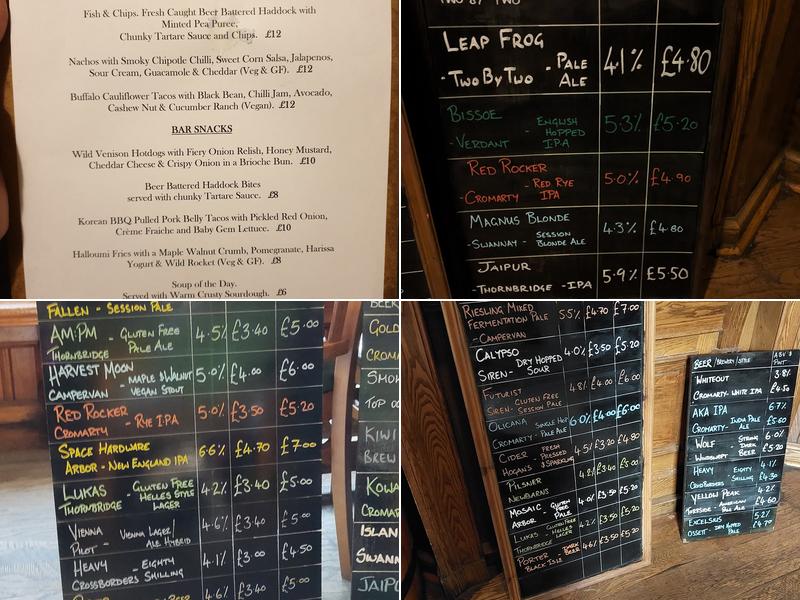 Fish & Chips. Fresh Caught Beer Battered Haddock with
Minted Pea Puree,
Chunky Tartare Sauce and Chips. £12
Nachos with Smoky Chipotle Chilli, Sweet Corn Salsa, Jalapenos,
Sour Cream, Guacamole & Cheddar (Veg & GF). £12
Buffalo Cauliflower Tacos with Black Bean, Chilli Jam, Avocado,
Cashew Nut & Cucumber Ranch (Vegan). £12
BAR SNACKS
Wild Venison Hotdogs with Fiery Onion Relish, Honey Mustard,
Cheddar Cheese & Crispy Onion in a Brioche Bun. £10
Beer Battered Haddock Bites
served with chunky Tartare Sauce. £8
Korean BBQ Pulled Pork Belly Tacos with Pickled Red Onion,
Crème Fraiche and Baby Gem Lettuce. £10
Halloumi Fries with a Maple Walnut Crumb, Pomegranate, Harissa
Yogurt & Wild Rocket (Veg & GF). £8
Soup of the Day.
Served with Warm Crusty Sourdough. £6
TWO BY TWO
LEAP FROG
- TWO BY TWO - PALE ALE 4.1% £4.80
BISSOE
- VERDANT - ENGLISH HOPPED I.P.A 5.3% £5.20
RED ROCKER
- CROMARTY - RED RYE IPA 5.0% £4.90
MAGNUS BLONDE
- SWANNAY - SESSION BLONDE ALE 4.3% £4.80
JAIPUR
- THORNBRIDGE - IPA 5.9% £5.50
FALLEN - SESSION PALE
AM:PM - GLUTEN FREE 4.5% £3.40 £5.00
THORNBRIDGE PALE ALE
HARVEST MOON 5.0% £4.00 £6.00
CAMPERVAN - MAPLE & WALNUT VEGAN STOUT
RED ROCKER 5.0% £3.50 £5.20
CROMARTY - RYE I.PA
SPACE HARDWARE 6.6% £4.70 £7.00
ARBOR - NEW ENGLAND IPA
LUKAS - GLUTEN FREE 4.2% £3.40 £5.00
THORNBRIDGE HELLES STYLE LAGER
VIENNA - VIENNA LAGER/ 4.6% £3.40 £5.00
PILOT - ALE HYBRID
HEAVY - EIGHTY 4.1% £3.00 £4.50
CROSSBORDERS SHILLING
4.6% £3.40 £5.00
BEER
GOLD
CROMA
SMOK
TOP
KIWI
BREW
KOWA
CROMAR
ISLAN
SWANN
JAIPU
RIESLING MIXED 5.5% £4.70 £7.00
FERMENTATION PALE
- CAMPERVAN
CALYPSO 4.0% £3.50 £5.20
SIREN - DRY HOPPED SOUR
FUTURIST 4.8% £4.00 £6.00
- GLUTEN FREE
SIREN - SESSION PALE
OLICANA SINGLE HOP 6.0% £4.00 £6.00
CROMARTY - PALE ALE
CIDER - FRESH PRESSED 4.5% £3.20 £4.80
HOGANS & SPARKLING
PILSNER 4.2% £3.40 £5.00
NEWBARNS
MOSAIC GLUTEN FREE 4.0% £3.50 £5.20
ARBOR - PALE
LUKAS - GLUTEN FREE 4.2% £3.50
THORNBRIDGE HELLES LAGER
PORTER - DARK BEER 4.6% £3.50 £5.20
BLACK ISLE
BEER / BREWERY / STYLE ABV £ PINT
WHITEOUT 3.8%
CROMARTY - WHITE IPA £4.50
AKA IPA 6.7%
CROMARTY - INDIA PALE ALE £5.60
WOLF STRONG 6.0%
WINDSWEPT - DARK BEER £5.20
HEAVY - EIGHTY 4.1%
CROSSBORDERS - SHILLING £4.30
YELLOW PEAK 4.2%
TURRSIDE - AMERICAN PALE £4.60
EXCELSIUS 5.2%
OSSETT - DRY HOPPED PALE £4.70